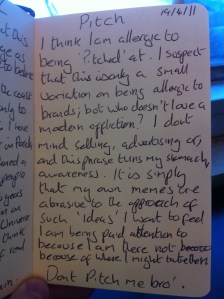 Pitch
19/4/11
I think I am allergic to
being 'Pitched' at. I suspect
that this is only a small
variation on being allergic to
brands; but who doesn't love a
modern affliction? I don't
mind selling, advertising or,
and this phrase turns my stomach,
awareness. It is simply
that my own memes are
abrasive to the approach of
such 'ideas'. I want to feel
I am being paid attention to
because I am here not
because of where I might
Dont Pitch me bro'.